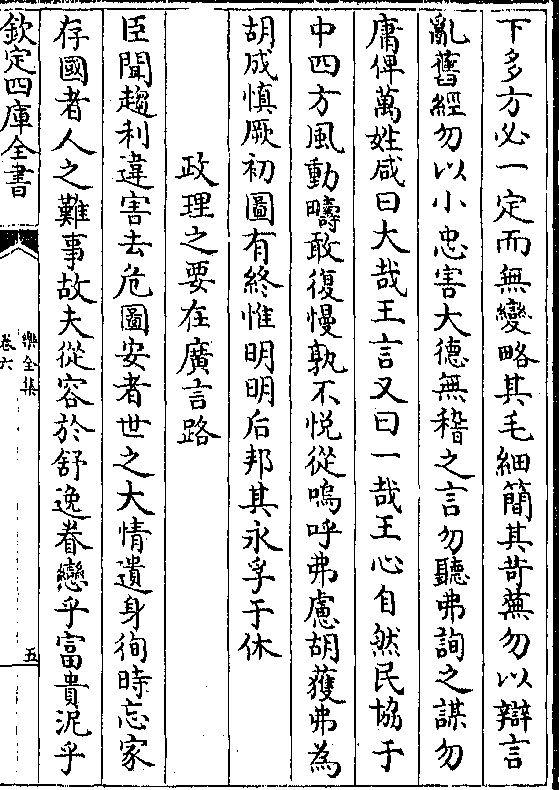 下多方必一定而無變略其毛細簡其苛蕪勿以辯言
亂舊經勿以小忠害大德無稽之言勿聽弗詢之謀勿
庸俾萬姓咸曰大哉王言又曰一哉王心自然民協于
中四方風動疇敢復慢孰不悅從嗚呼弗慮胡獲弗為
胡成慎厥初圖有終惟明明后邦其永孚于休
政理之要在廣言路
臣聞趨利違害去危圖安者世之大情遺身徇時忘家
存國者人之難事故夫從容於舒逸眷戀乎富貴泥乎
欽定四庫全書
樂全集
卷六
五